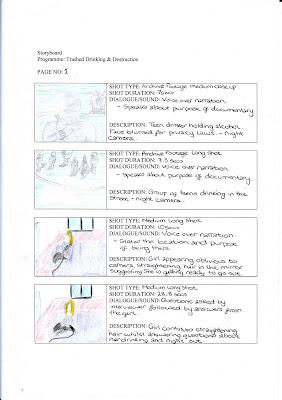 Storyboard
Programme: Trashed Drinking & Destruction
PAGE NO: 1
SHOT TYPE: Archive footage medium close up
SHOT DURATION: 7 secs
DIALOGUE/SOUND: Voice over narration.
- Speaks about purpose of documentary
DESCRIPTION: Teen drinker holding alcohol.
Face blurred for privacy laws. - night
camera.
SHOT TYPE: Archive Footage Long Shot
SHOT DURATION: 9.5 secs
DIALOGUE/SOUND: Voice over narration
- Speaks about purpose of documentary
DESCRIPTION: Group of teens drinking in the
Street - night camera.
SHOT TYPE: Medium Long Shot
SHOT DURATION: 10 secs
DIALOGUE/SOUND: Voice over narration.
- States the location and purpose
of being there.
DESCRIPTION: Girl appearing oblivious to
camera, straightening hair in the mirror
suggesting she is getting ready to go out
SHOT TYPE: Medium Long Shot
SHOT DURATION: 28.8 secs
DIALOGUE/SOUND: Questions asked by
interviewer followed by answers from
the girl.
DESCRIPTION: Girl continues straightening
hair whilst answering questions about
her drinking and 'night out'